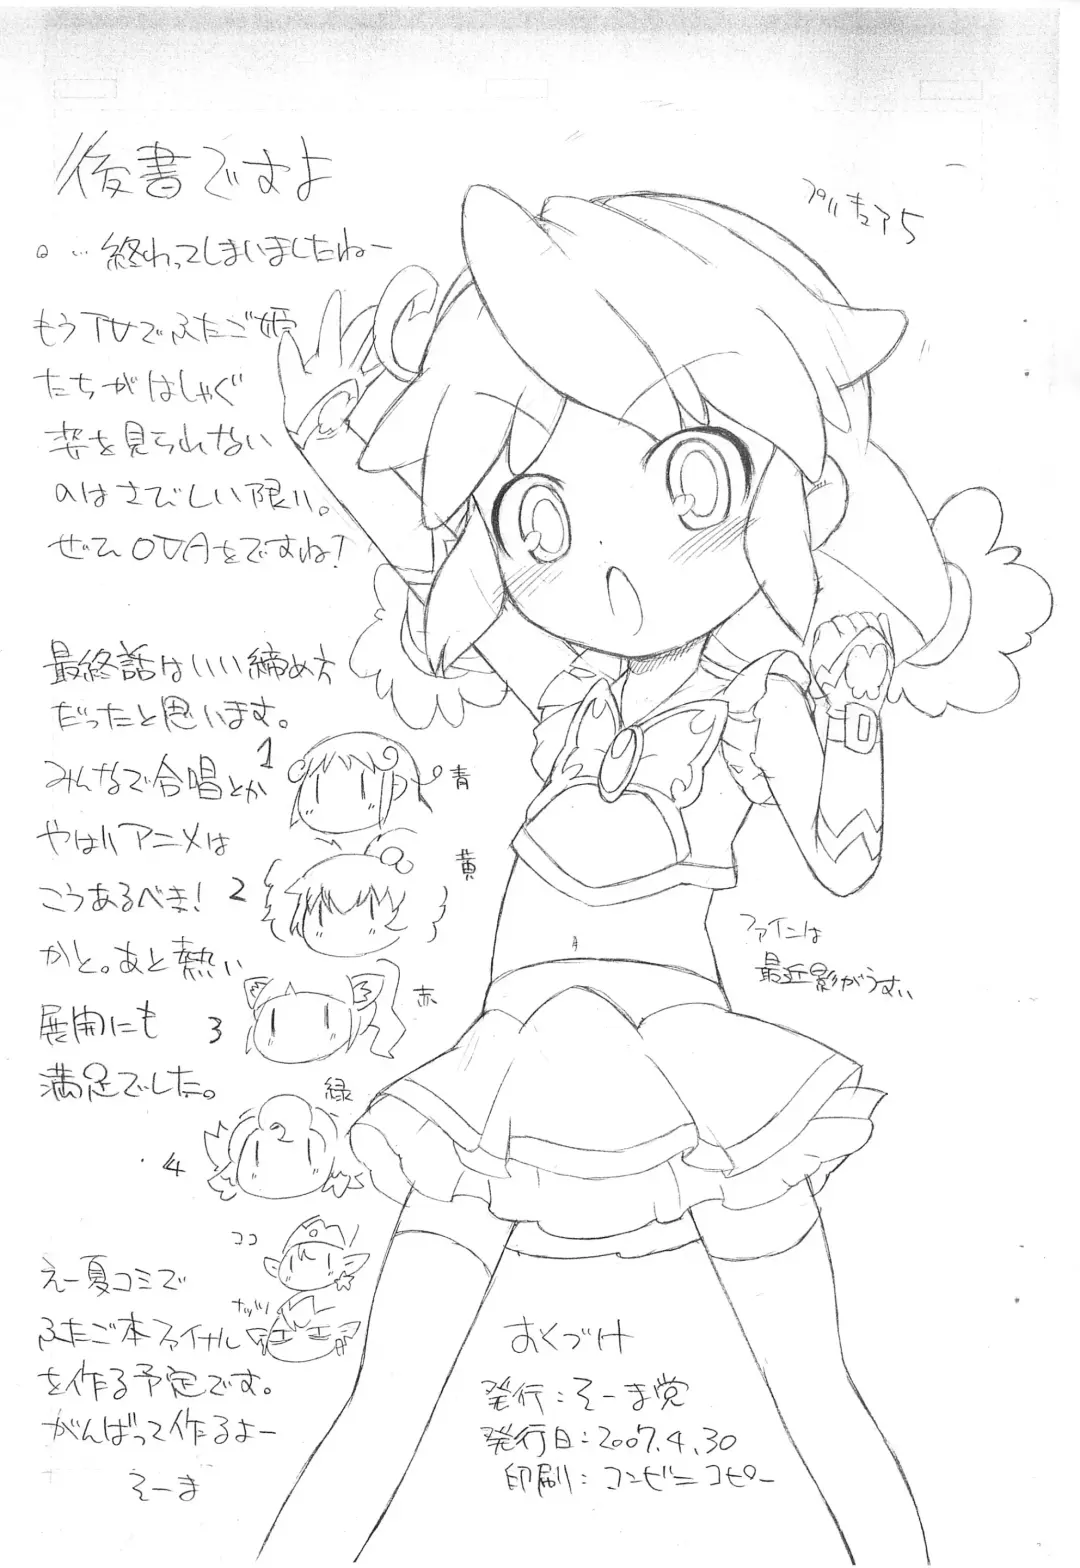 後書ですよ
…終わってしまいましたねー
もうTVでふたご姫
たちがはしゃぐ
姿を見られない
のはさびしい限り。
ぜひOVAをですね!
最終話はいい締め方
だったと思います。
みんなで合唱とか
やはりアニメは
こうあるべき!
かと。あと熱い
展開にも
満足でした。
1
青
2
黄
3
赤
4
緑
ココ
ナッツ
えー夏コミで
ふたご本ファイナル
を作る予定です。
がんばって作るよー
そーま
プリキュア5
ファインは
最近影がうすい
おくづけ
発行:そーま党
発行日:2007.4.30
印刷:コンビニコピー